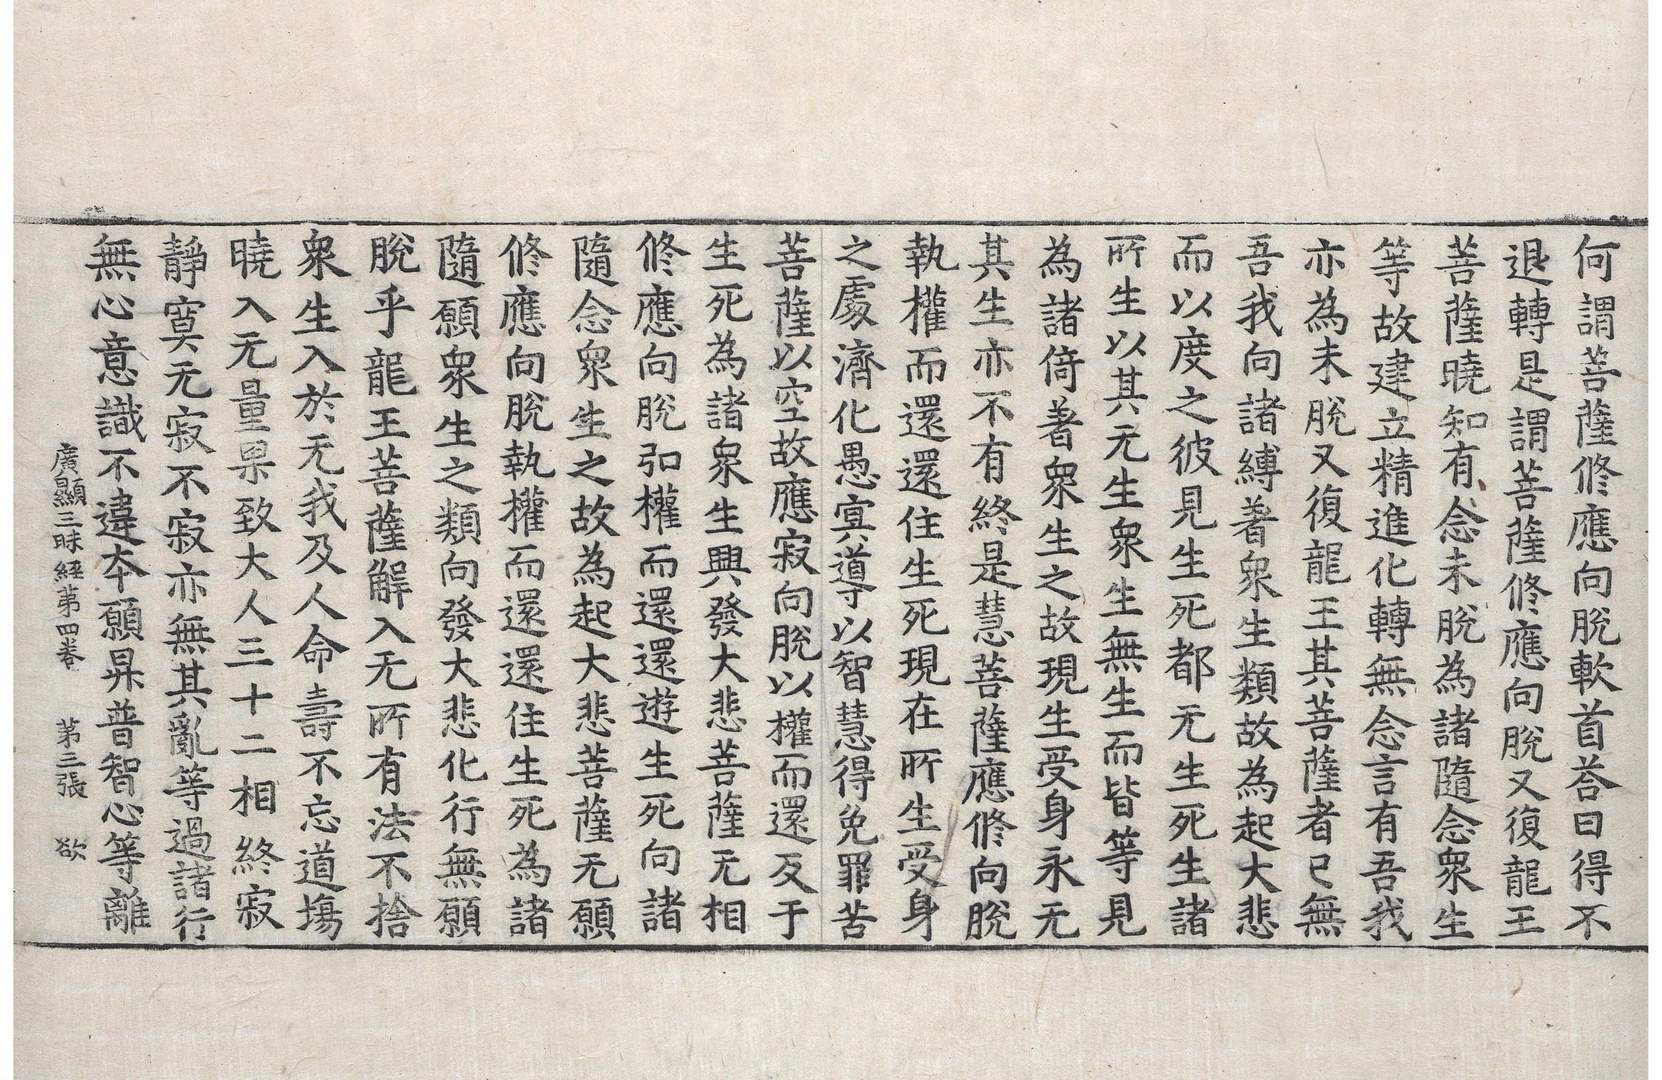 何謂菩薩修應向脫軟首荅曰得不
退轉是謂菩薩修應向脫又復龍王
菩薩曉知有念未脫為諸隨念衆生
等故建立精進化轉無念言有吾我
亦為未脫又復龍王其菩薩者已無
吾我向諸縛著衆生類故為起大悲
而以度之彼見生死都无生死生諸
所生以其无生衆生無生而皆等見
為諸倚著衆生之故現生受身永无
其生亦不有終是慧菩薩應修向脫
執權而還還住生死現在所生受身
之處濟化愚冥導以智慧得免罪苦
菩薩以空故應寂向脫以權而還及于
生死為諸衆生興發大悲菩薩无相
修應向脫弘權而還還遊生死向諸
隨念衆生之故為起大悲菩薩无願
修應向脫執權而還還住生死為諸
隨願衆生之類向發大悲化行無願
脫乎龍王菩薩解入无所有法不捨
衆生入於无我及人命壽不忘道塲
曉入无量果致大人三十二相終寂
靜寞无寂不寂亦無其亂等過諸行
無心意識不違本願昇普智心等離
廣顯三昧經第四卷 第三張 欲